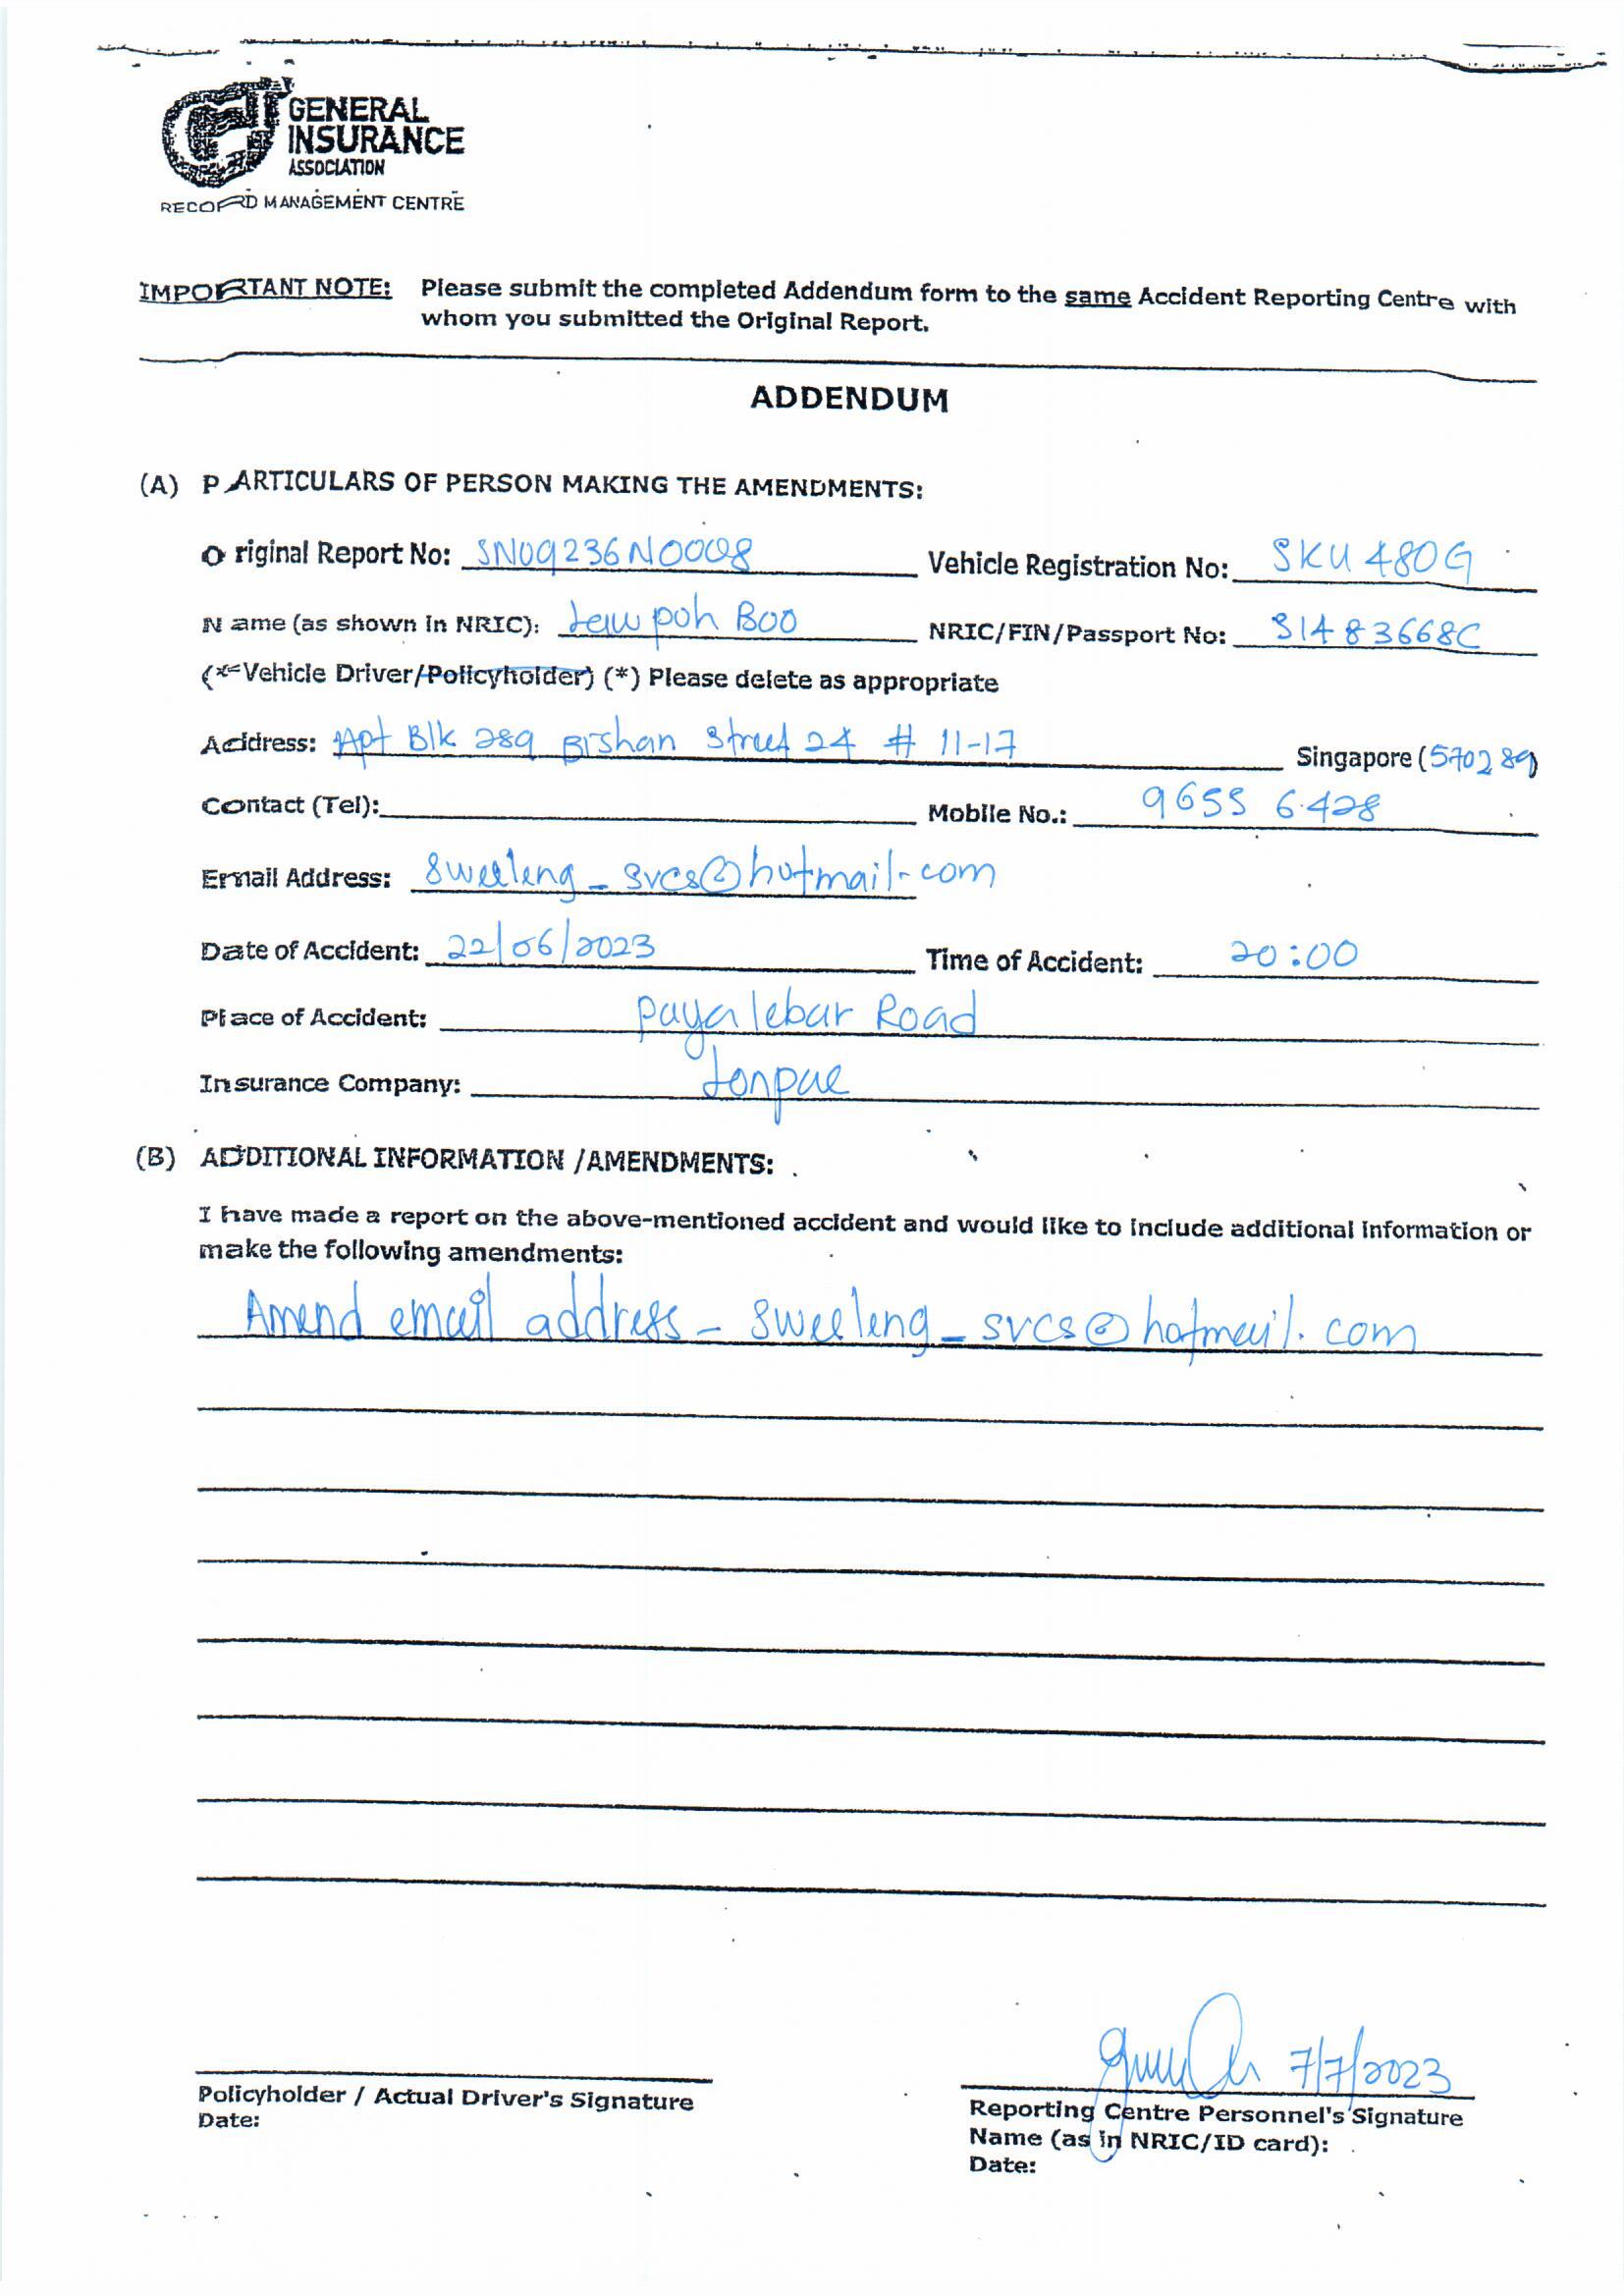 GENERAL
INSURANCE
ASSOCIATION
RECORD MANAGEMENT CENTRE
IMPORTANT NOTE: Please submit the completed Addendum form to the same Accident Reporting Centre with
whom you submitted the Original Report.
ADDENDUM
(A) PARTICULARS OF PERSON MAKING THE AMENDMENTS:
Original Report No: SN09236N0008 Vehicle Registration No: SKU 480G
Name (as shown in NRIC): Lew poh Boo NRIC/FIN/Passport No: S1483668C
(*Vehicle Driver/Policyholder) (*) Please delete as appropriate
Address: Apt Blk 289 Bishan Street 24 # 11-17 Singapore (570289)
Contact (Tel): Mobile No.: 9655 6428
Email Address: sweeleng_svcs@hotmail.com
Date of Accident: 22/06/2023 Time of Accident: 20:00
Place of Accident: Paya lebar Road
Insurance Company: Lonpac
(B) ADDITIONAL INFORMATION /AMENDMENTS:
I have made a report on the above-mentioned accident and would like to include additional information or
make the following amendments:
Amend email address - sweeleng_svcs@hotmail.com
7/7/2023
Policyholder / Actual Driver's Signature Reporting Centre Personnel's Signature
Date: Name (as in NRIC/ID card):
Date: